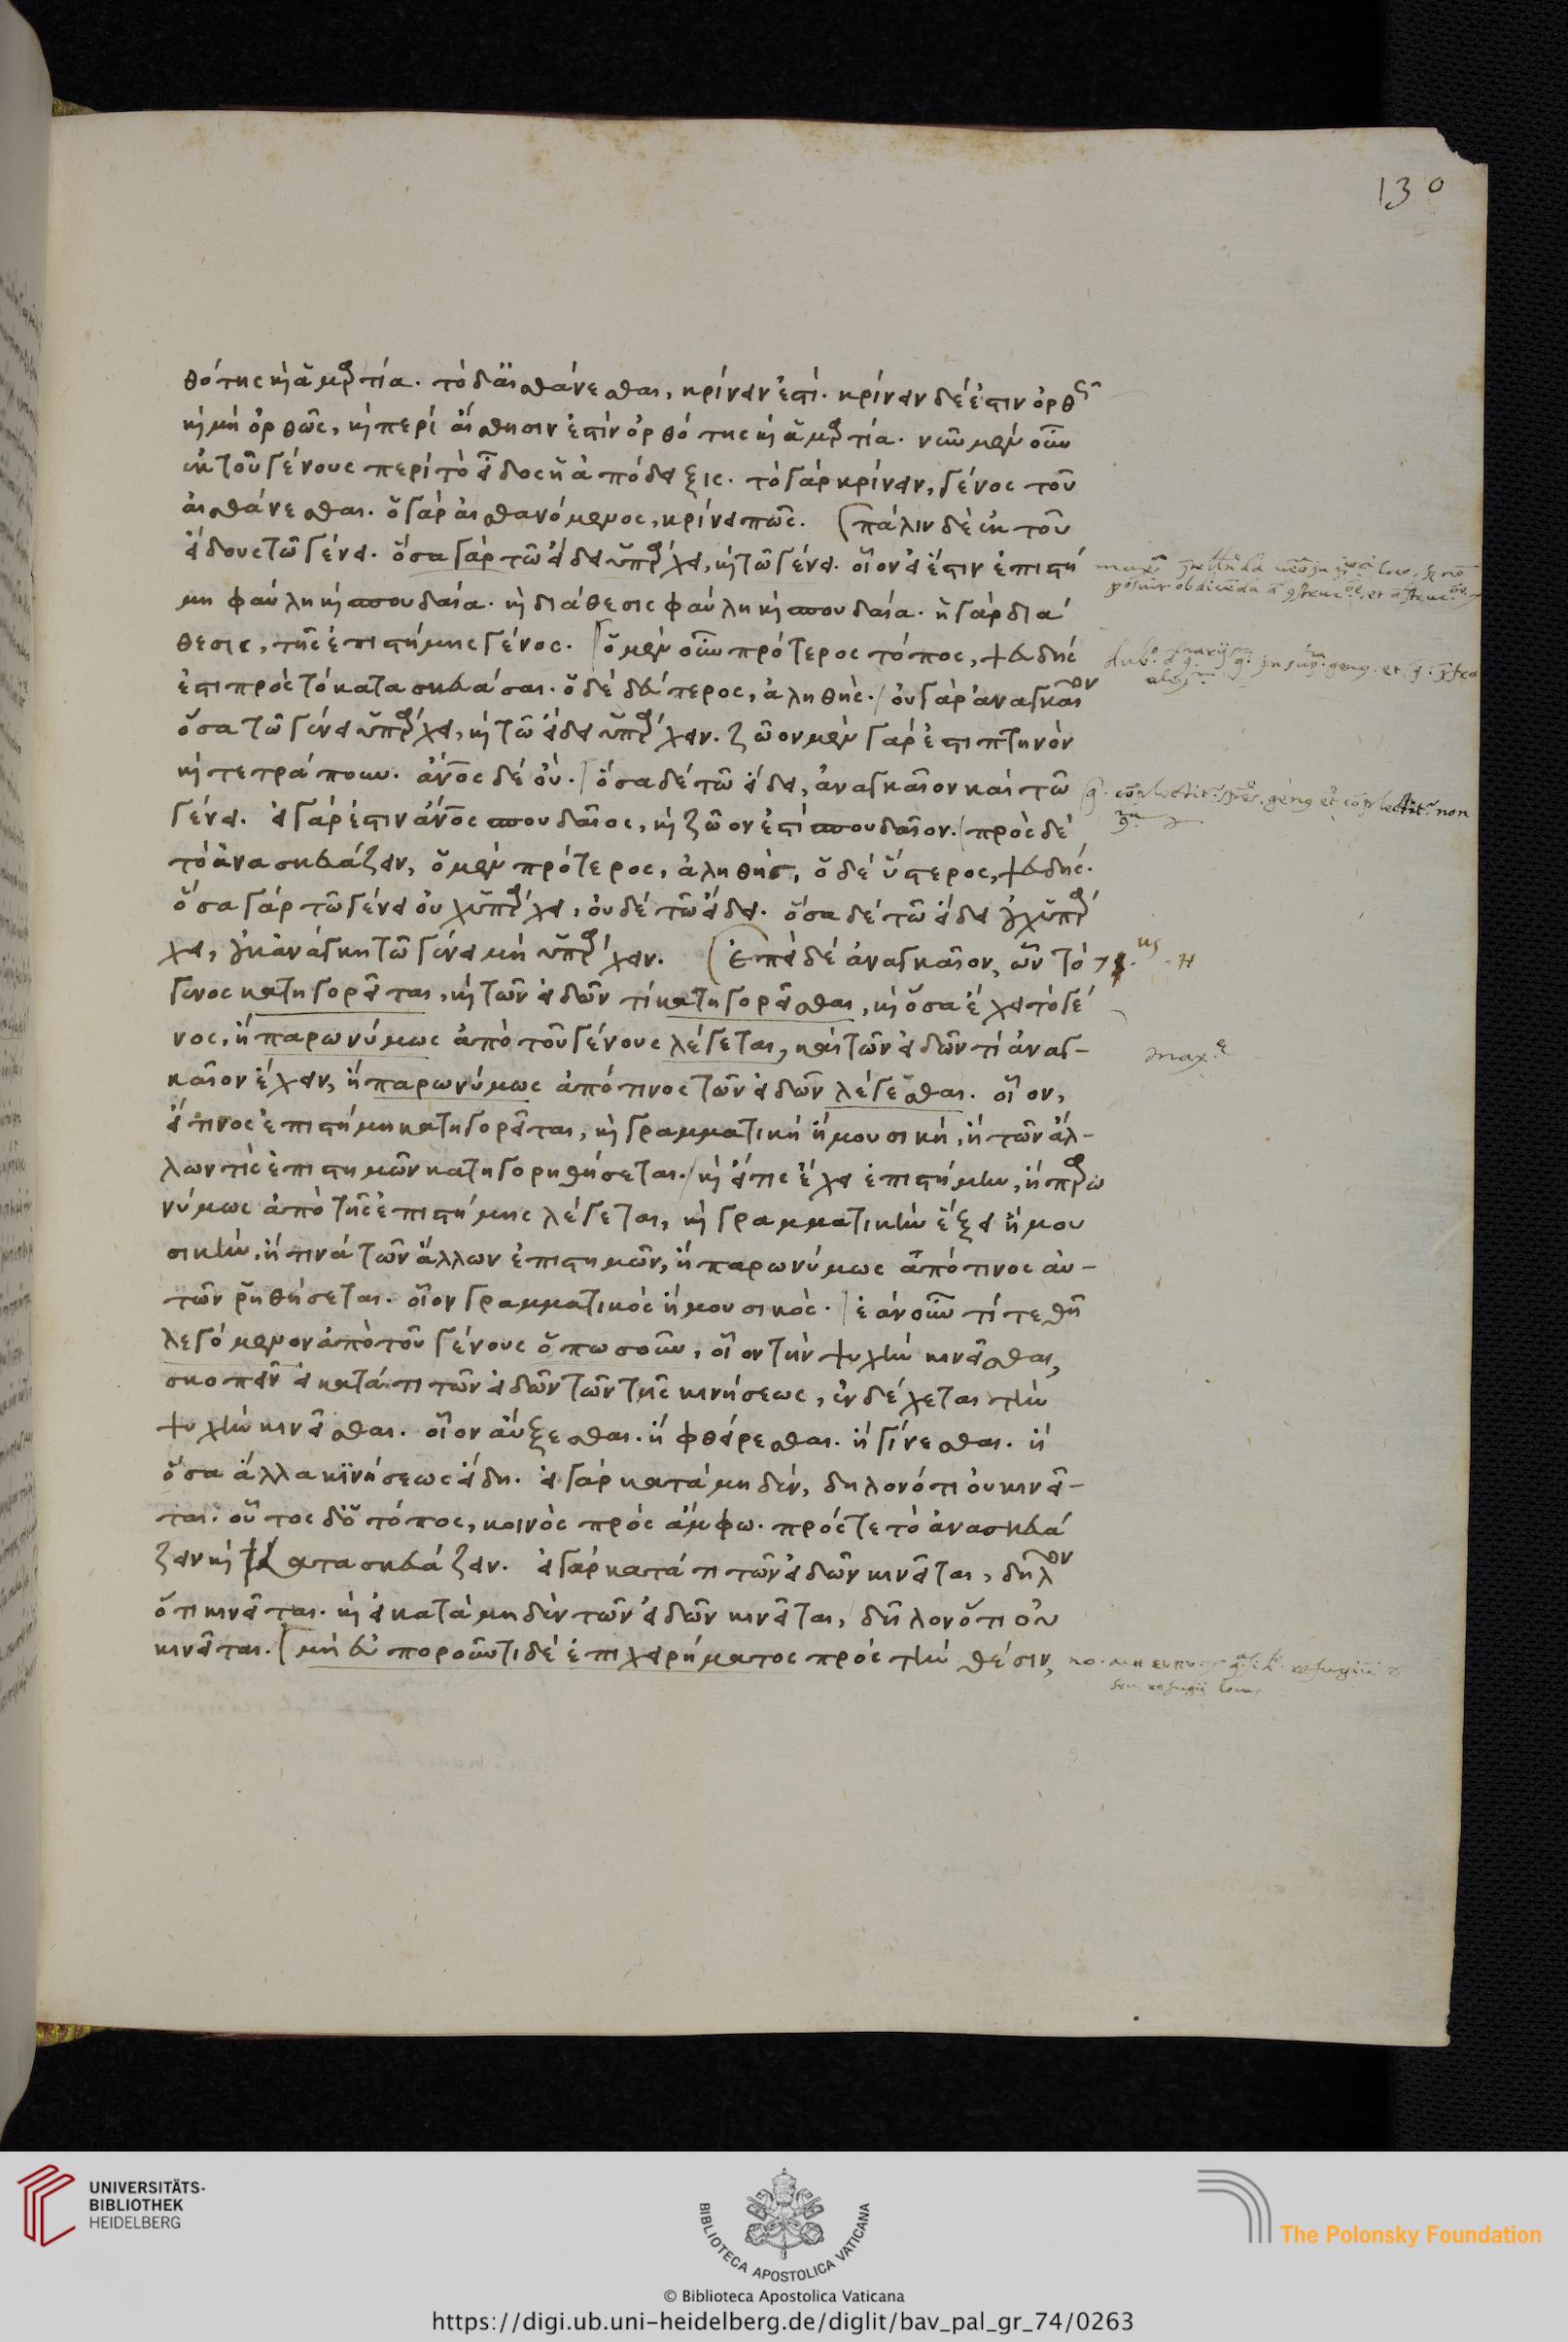 130
θότης καὶ ἁμαρτία. τὸ δ' αἰσθάνεσθαι, κρίνειν ἐστί. κρίνειν δέ ἐστιν ὀρθῶς
καὶ μὴ ὀρθῶς, καὶ περὶ αἴσθησιν ἐστὶν ὀρθότης καὶ ἁμαρτία. νῦν μὲν οὖν
ἐκ τοῦ γένους περὶ τὸ εἶδος ἡ ἀπόδειξις. τὸ γὰρ κρίνειν, γένος τοῦ
αἰσθάνεσθαι. ὁ γὰρ αἰσθανόμενος, κρίνει πῶς. πάλιν δὲ ἐκ τοῦ
εἴδους τῶ γένει. ὅσα γὰρ τῶ εἴδει ὑπάρχει, καὶ τῶ γένει. οἷον εἰ ἔστιν ἐπιστή
μη φαύλη καὶ σπουδαία. καὶ διάθεσις φαύλη καὶ σπουδαία. ἡ γὰρ διά
θεσις, τῆς ἐπιστήμης γένος. ὁ μὲν οὖν πρότερος τόπος, ψευδής
ἐστι πρὸς τὸ κατασκευάσαι. ὁ δὲ δεύτερος, ἀληθής. οὐ γὰρ ἀναγκαῖον
ὅσα τῶ γένει ὑπάρχει, καὶ τῶ εἴδει ὑπάρχειν. ζῶον μὲν γάρ ἐστι πτηνὸν
καὶ τετράπουν. ἄνος δὲ οὔ. ὅσα δὲ τῶ εἴδει, ἀναγκαῖον καὶ τῶ
γένει. εἰ γάρ ἐστιν ἄνος σπουδαῖος, καὶ ζῶον ἐστὶ σπουδαῖον. πρὸς δὲ
τὸ ἀνασκευάζειν, ὁ μὲν πρότερος, ἀληθής, ὁ δὲ ὕστερος, ψευδής.
ὅσα γὰρ τῶ γένει οὐχ ὑπάρχει, οὐδὲ τῶ εἴδει. ὅσα δὲ τῶ εἴδει οὐχ ὑπάρ
χει, οὐκ ἀνάγκη τῶ γένει μὴ ὑπάρχειν. Ἐπεὶ δὲ ἀναγκαῖον, ὧν τὸ
γένος κατηγορεῖται, καὶ τῶν εἰδῶν τί κατηγορεῖσθαι, καὶ ὅσα ἔχει τὸ γέ
νος, ἢ παρωνύμως ἀπὸ τοῦ γένους λέγεται, καὶ τῶν εἰδῶν τί ἀναγ-
καῖον ἔχειν, ἢ παρωνύμως ἀπό τινος τῶν εἰδῶν λέγεσθαι. οἷον,
εἴ τινος ἐπιστήμη κατηγορεῖται, καὶ γραμματικὴ ἢ μουσικὴ, ἢ τῶν ἄλ-
λων τίς ἐπιστημῶν κατηγορηθήσεται. καὶ εἴ τις ἔχει ἐπιστήμην, ἢ παρω
νύμως ἀπὸ τῆς ἐπιστήμης λέγεται, καὶ γραμματικὴν ἕξει ἢ μου
σικὴν, ἢ τινὰ τῶν ἄλλων ἐπιστημῶν, ἢ παρωνύμως ἀπό τινος αὐ-
τῶν ῥηθήσεται. οἷον γραμματικὸς ἢ μουσικός. ἐὰν οὖν τί τεθῆ
λεγόμενον ἀπὸ τοῦ γένους ὁπωσοῦν, οἷον τὴν ψυχὴν κινεῖσθαι,
σκοπεῖν εἰ κατά τι τῶν εἰδῶν τῶν τῆς κινήσεως, ἐνδέχεται τὴν
ψυχὴν κινεῖσθαι. οἷον αὔξεσθαι. ἢ φθείρεσθαι. ἢ γίνεσθαι. ἢ
ὅσα ἄλλα κινήσεως εἴδη. εἰ γὰρ κατὰ μηδέν, δηλονότι οὐ κινεῖ-
ται. οὗτος δ' ὁ τόπος, κοινὸς πρὸς ἄμφω. πρός τε τὸ ἀνασκευά
ζειν καὶ κατασκευάζειν. εἰ γὰρ κατά τι τῶν εἰδῶν κινεῖται, δῆλον
ὅτι κινεῖται. καὶ εἰ κατὰ μηδὲν τῶν εἰδῶν κινεῖται, δῆλον ὅτι οὐ
κινεῖται. μὴ εὐποροῦντι δὲ ἐπιχειρήματος πρὸς τὴν θέσιν,
max.e
UNIVERSITÄTS-
BIBLIOTHEK
HEIDELBERG
BIBLIOTECA APOSTOLICA VATICANA
The Polonsky Foundation
© Biblioteca Apostolica Vaticana
https://digi.ub.uni-heidelberg.de/diglit/bav_pal_gr_74/0263